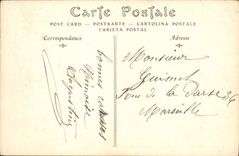 Carte Postale
POST CARD — POSTKARTE — CARTOLINA POSTALE
TARJETA POSTAL
Correspondance
Adresse
bonnes
Monsieur
Guimet
Rue de la Darse 36
Marseille